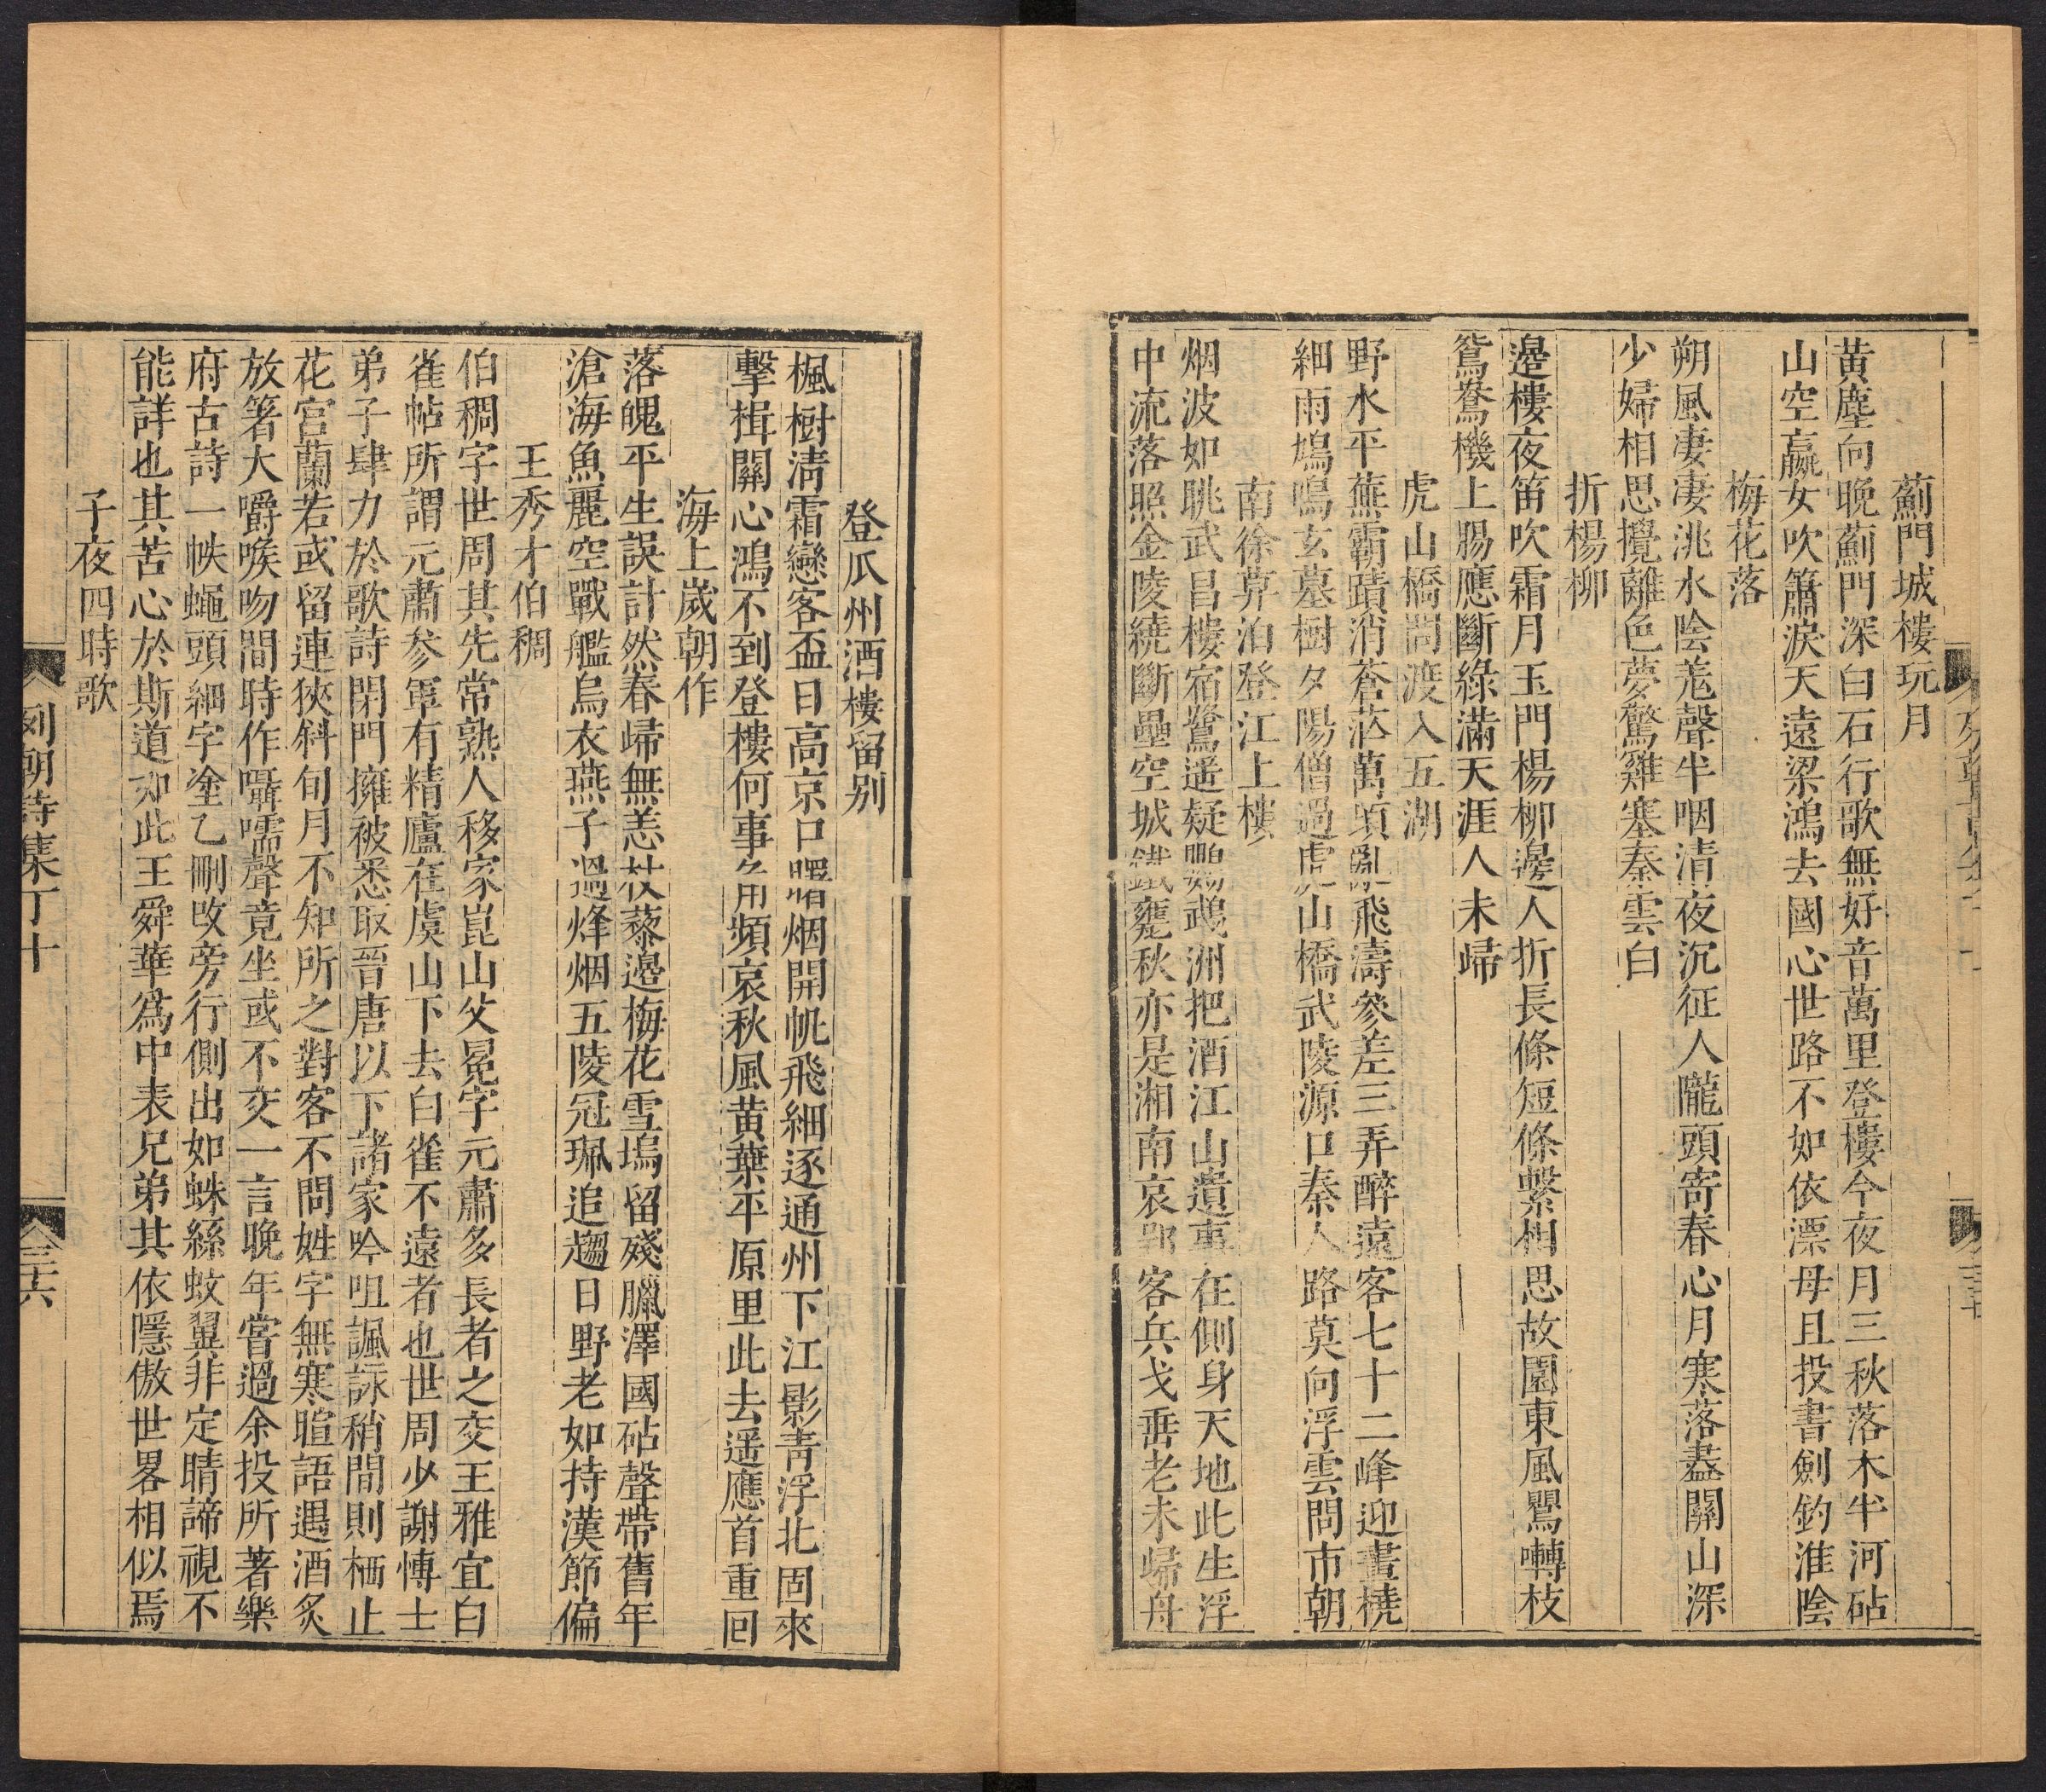 薊門城樓玩月
黃塵向晚薊門深白石行歌無好音萬里登樓今夜月三秋落木半河砧
山空嬴女吹簫淚天遠梁鴻去國心世路不如依漂母且投書劍釣淮陰
梅花落
朔風凄凄洮水陰羗聲半咽清夜沉征人隴頭寄春心月寒落盡關山深
少婦相思攪離色夢驚雞塞秦雲白
折楊柳
邊樓夜笛吹霜月玉門楊柳邊人折長條短條繫相思故園東風鸎囀枝
鴛鴦機上腸應斷綠滿天涯人未歸
虎山橋閙渡入五湖
野水平蕪霸蹟消蒼茫萬頃亂飛濤參差三弄醉遠客七十二峰迎畫橈
細雨鳩鳴玄墓樹夕陽僧過虎山橋武陵源口秦人路莫向浮雲問市朝
南徐荐泊登江上樓
烟波如眺武昌樓宿鷺遥疑鸚鵡洲把酒江山遺事在側身天地此生浮
中流落照金陵繞斷壘空城鐵甕秋亦是湘南哀郢客兵戈垂老未歸舟
登瓜州酒樓留别
楓樹淸霜戀客盃日高京口曙烟開帆飛細逐通州下江影靑浮北固來
擊楫關心鴻不到登樓何事角頻哀秋風黃葉平原里此去遥應首重回
海上歲朝作
落魄平生誤計然春歸無恙杖藜邊梅花雪塢留殘臘澤國砧聲帶舊年
滄海魚麗空戰艦烏衣燕子過烽烟五陵冠珮追趨日野老如持漢節偏
王秀才伯稠
伯稠字世周其先常熟人移家崑山父冕字元肅多長者之交王雅宜白
雀帖所謂元肅參軍有精廬在虞山下去白雀不遠者也世周少謝慱士
弟子肆力於歌詩閉門擁被悉取晉唐以下諸家吟咀諷詠稍間則栖止
花宮蘭若或留連狹斜旬月不知所之對客不問姓字無寒暄語遇酒炙
放箸大嚼喉吻間時作囁嚅聲竟坐或不交一言晚年嘗過余投所著樂
府古詩一帙蠅頭細字塗乙刪改旁行側出如蛛絲蚊翼非定睛諦視不
能詳也其苦心於斯道如此王舜華爲中表兄弟其依隱傲世畧相似焉
子夜四時歌
列朝詩集丁十
三六